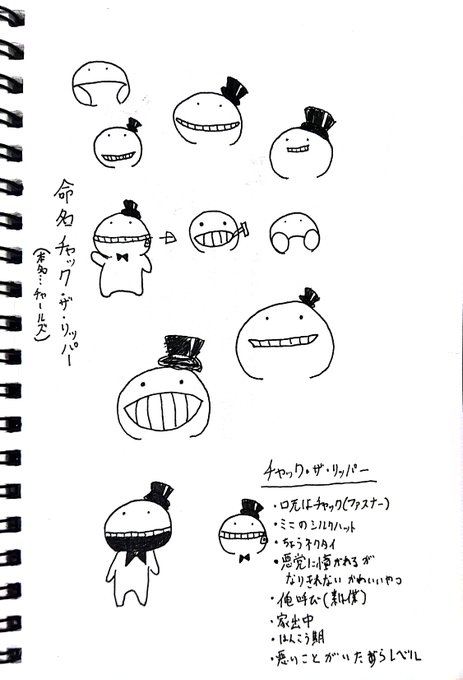 命名 チャック・ザ・リッパー
(本名…チャールズ)
チャック・ザ・リッパー
・口元はチャック(ファスナー)
・ミニのシルクハット
・ちょうネクタイ
・悪党に憧れるが
なりきれない かわいいやつ
・俺呼び(素は僕)
・家出中
・はんこう期
・悪いことがいたずらレベル